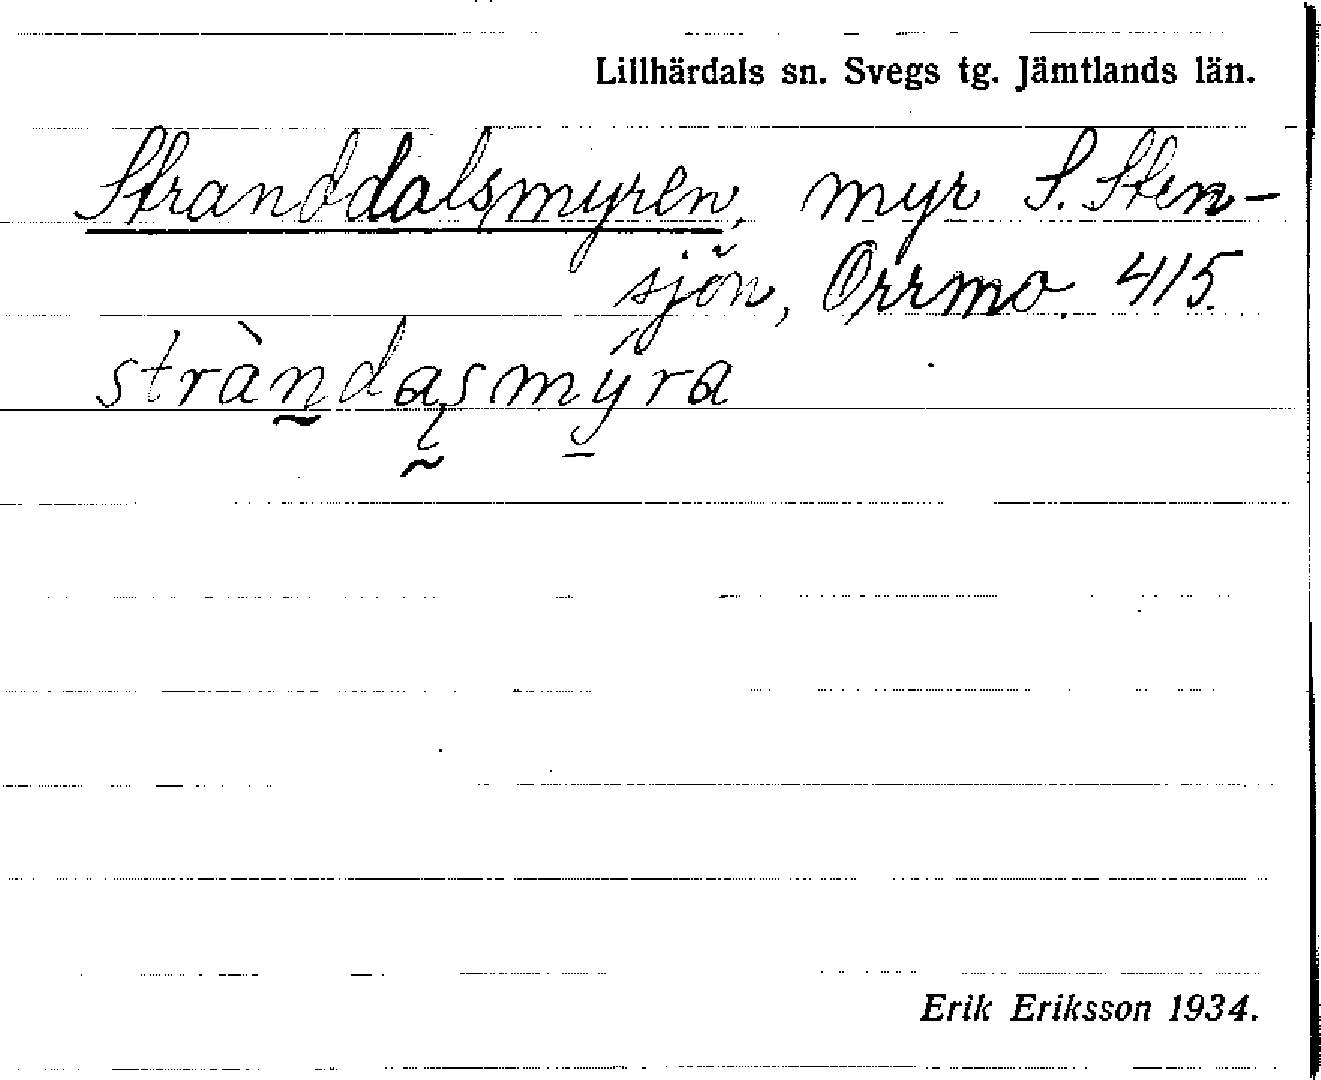 Lillhärdals sn. Svegs tg. Jämtlands län.
Stranddalsmyren, myr S. Sten-
sjön, Orrmo. 415.
stràndasmýra
Erik Eriksson 1934.